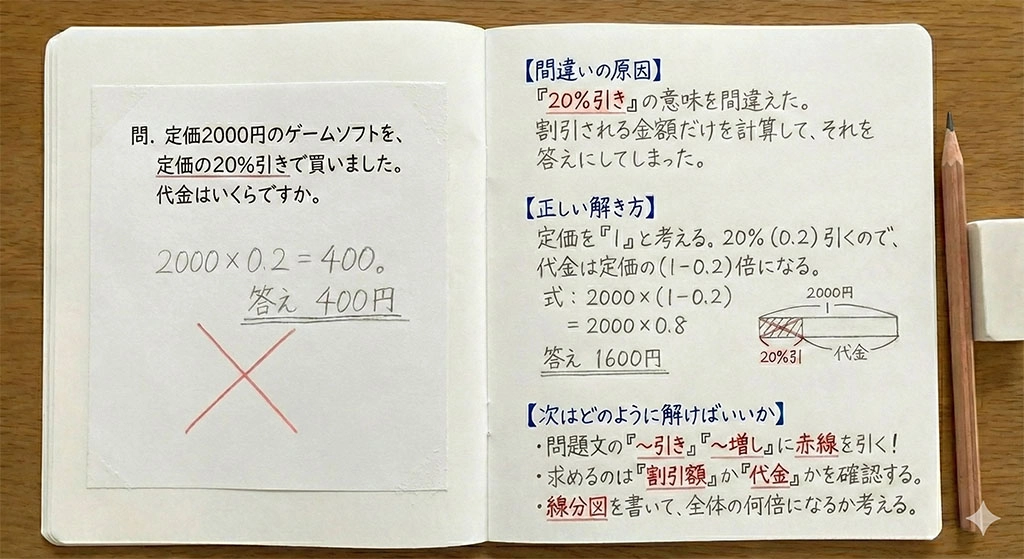 問. 定価2000円のゲームソフトを、
定価の20%引きで買いました。
代金はいくらですか。
2000×0.2=400。
答え 400円
【間違いの原因】
『20%引き』の意味を間違えた。
割引される金額だけを計算して、それを
答えにしてしまった。
【正しい解き方】
定価を『1』と考える。20%(0.2)引くので、
代金は定価の(1-0.2)倍になる。
式:2000×(1-0.2)
=2000×0.8
答え 1600円
2000円
20%引
代金
【次はどのように解けばいいか】
・問題文の『〜引き』『〜増し』に赤線を引く!
・求めるのは『割引額』か『代金』かを確認する。
・線分図を書いて、全体の何倍になるか考える。